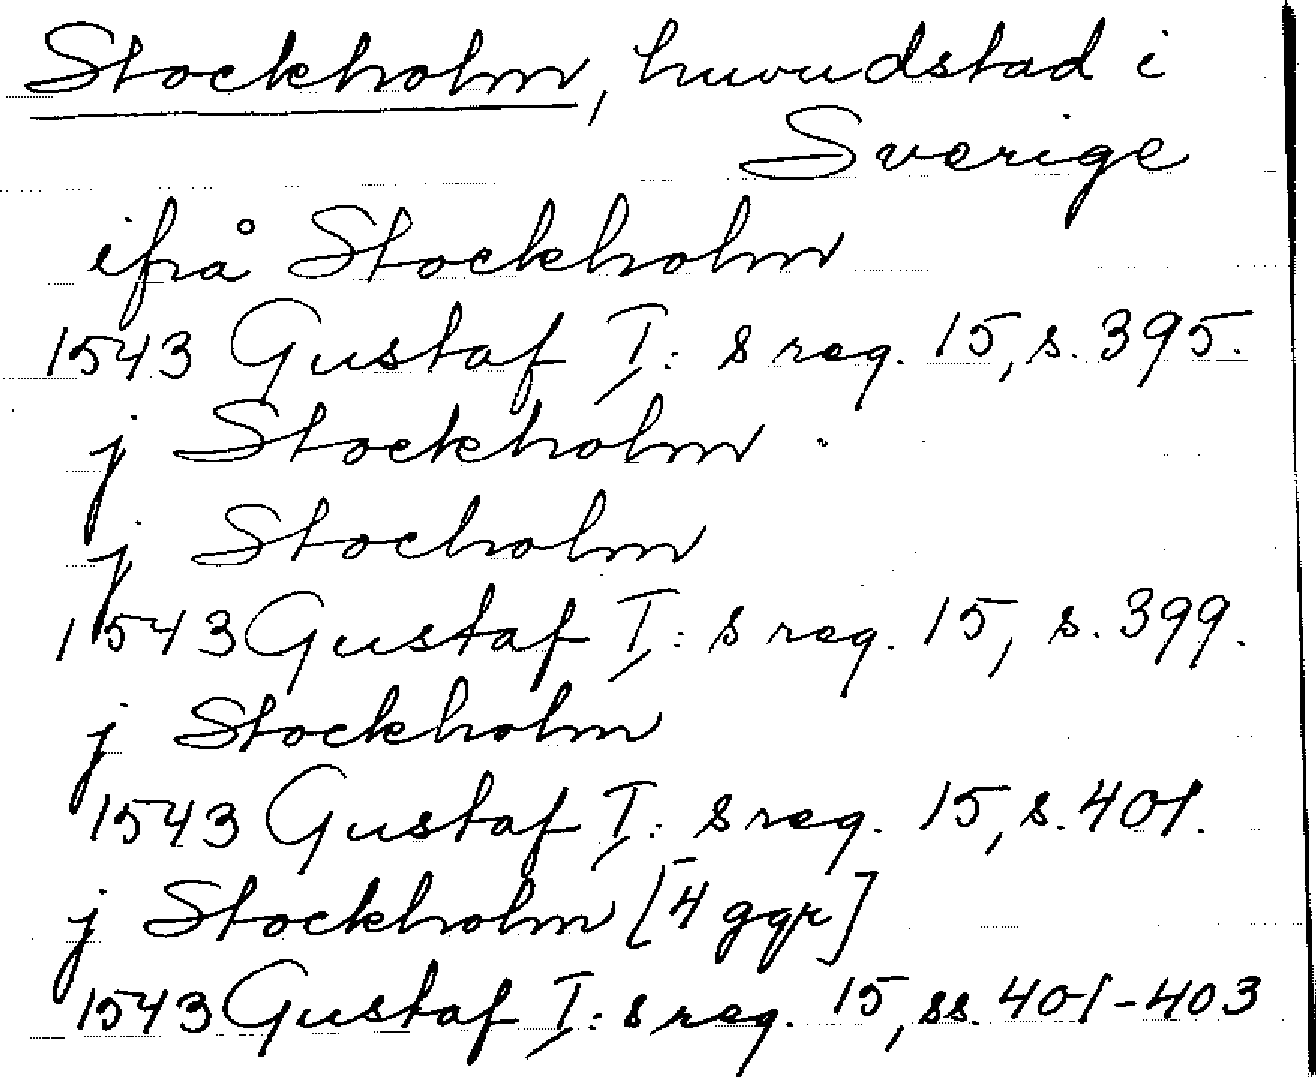 Stockholm, huvudstad i
Sverige
ifrå Stockholm
1543 Gustaf I:s reg. 15, s. 395.
j Stockholm
j Stocholm
1543 Gustaf I:s reg. 15, s. 399.
j Stockholm
1543 Gustaf I:s reg. 15, s. 401.
j Stockholm [4 ggr]
1543 Gustaf I:s reg. 15, ss. 401-403